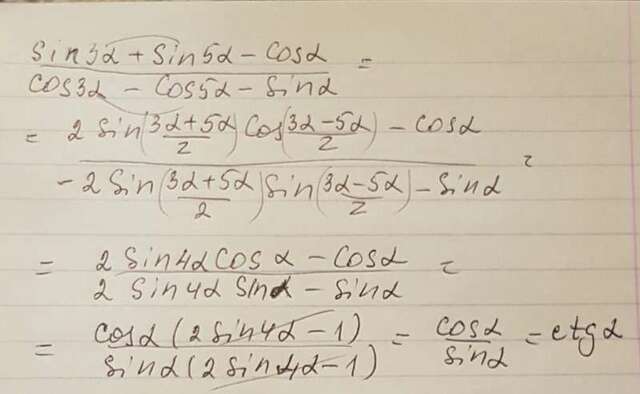 (sin3α + sin5α - cosα)/(cos3α - cos5α - sinα) =
= (2 sin((3α+5α)/2) cos((3α-5α)/2) - cosα)/(-2 sin((3α+5α)/2) sin((3α-5α)/2) - sinα) =
= (2 sin4α cos α - cosα)/(2 sin4α sinα - sinα) =
= (cosα (2sin4α - 1))/(sinα (2sin4α - 1)) = cosα/sinα = ctgα